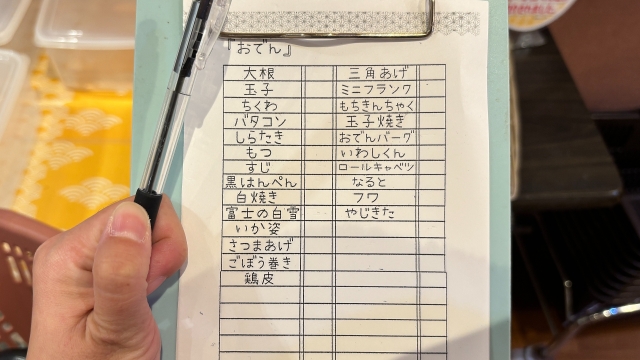 『おでん』
大根
玉子
ちくわ
バタコン
しらたき
もつ
すじ
黒はんぺん
白焼き
富士の白雪
いか姿
さつまあげ
ごぼう巻き
鶏皮
三角あげ
ミニフランク
もちきんちゃく
玉子焼き
おでんバーグ
いわしくん
ロールキャベツ
なると
フワ
やじきた